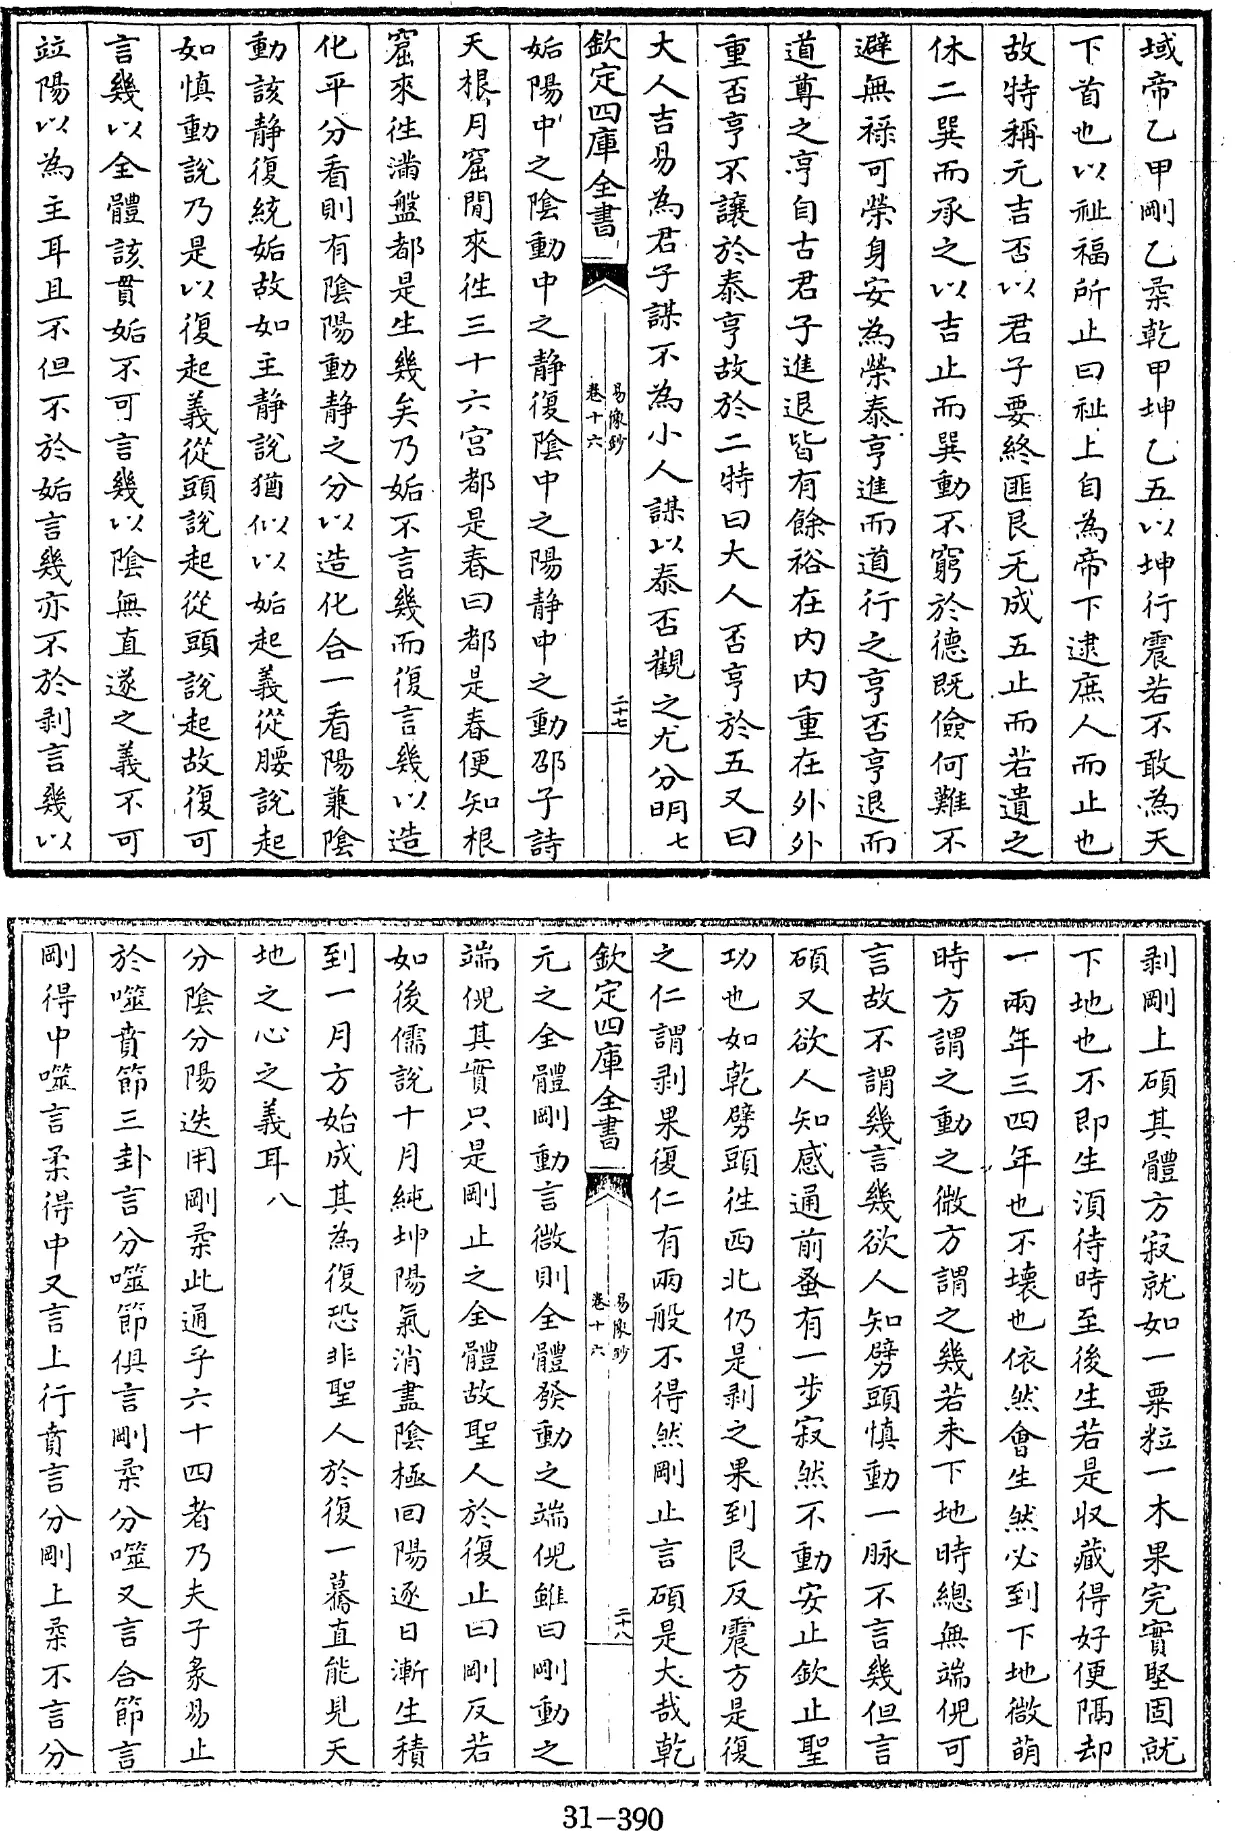 域帝乙甲剛乙柔乾甲坤乙五以坤行震若不敢為天
下首也以祉福所止曰祉上自為帝下逮庶人而止也
故特稱元吉否以君子要終匪艮无成五止而若遺之
休二巽而承之以吉止而巽動不窮於德既儉何難不
避無祿可榮身安為榮泰亨進而道行之亨否亨退而
道尊之亨自古君子進退皆有餘裕在内内重在外外
重否亨不讓於泰亨故於二特曰大人否亨於五又曰
大人吉易為君子謀不為小人謀以泰否觀之尤分明七
欽定四庫全書
易像鈔
卷十六
二十七
姤陽中之陰動中之静復陰中之陽静中之動邵子詩
天根月窟閒來徃三十六宫都是春曰都是春便知根
窟來徃滿盤都是生幾矣乃姤不言幾而復言幾以造
化平分看則有陰陽動静之分以造化合一看陽兼陰
動該静復統姤故如主静說猶似以姤起義從腰說起
如慎動說乃是以復起義從頭說起從頭說起故復可
言幾以全體該貫姤不可言幾以陰無直遂之義不可
竝陽以為主耳且不但不於姤言幾亦不於剥言幾以
剥剛上碩其體方寂就如一粟粒一木果完實堅固就
下地也不即生湏待時至後生若是收藏得好便隔却
一兩年三四年也不壞也依然會生然必到下地微萌
時方謂之動之微方謂之幾若未下地時總無端倪可
言故不謂幾言幾欲人知劈頭慎動一脉不言幾但言
碩又欲人知感通前蚤有一步寂然不動安止欽止聖
功也如乾劈頭徃西北仍是剥之果到艮反震方是復
之仁謂剥果復仁有兩般不得然剛止言碩是大哉乾
欽定四庫全書
易像鈔
卷十六
二十八
元之全體剛動言微則全體發動之端倪雖曰剛動之
端倪其實只是剛止之全體故聖人於復止曰剛反若
如後儒説十月純坤陽氣消盡陰極回陽逐日漸生積
到一月方始成其為復恐非聖人於復一驀直能見天
地之心之義耳八
分陰分陽迭用剛柔此通乎六十四者乃夫子彖易止
於噬賁節三卦言分噬節俱言剛柔分噬又言合節言
剛得中噬言柔得中又言上行賁言分剛上柔不言分
31-390